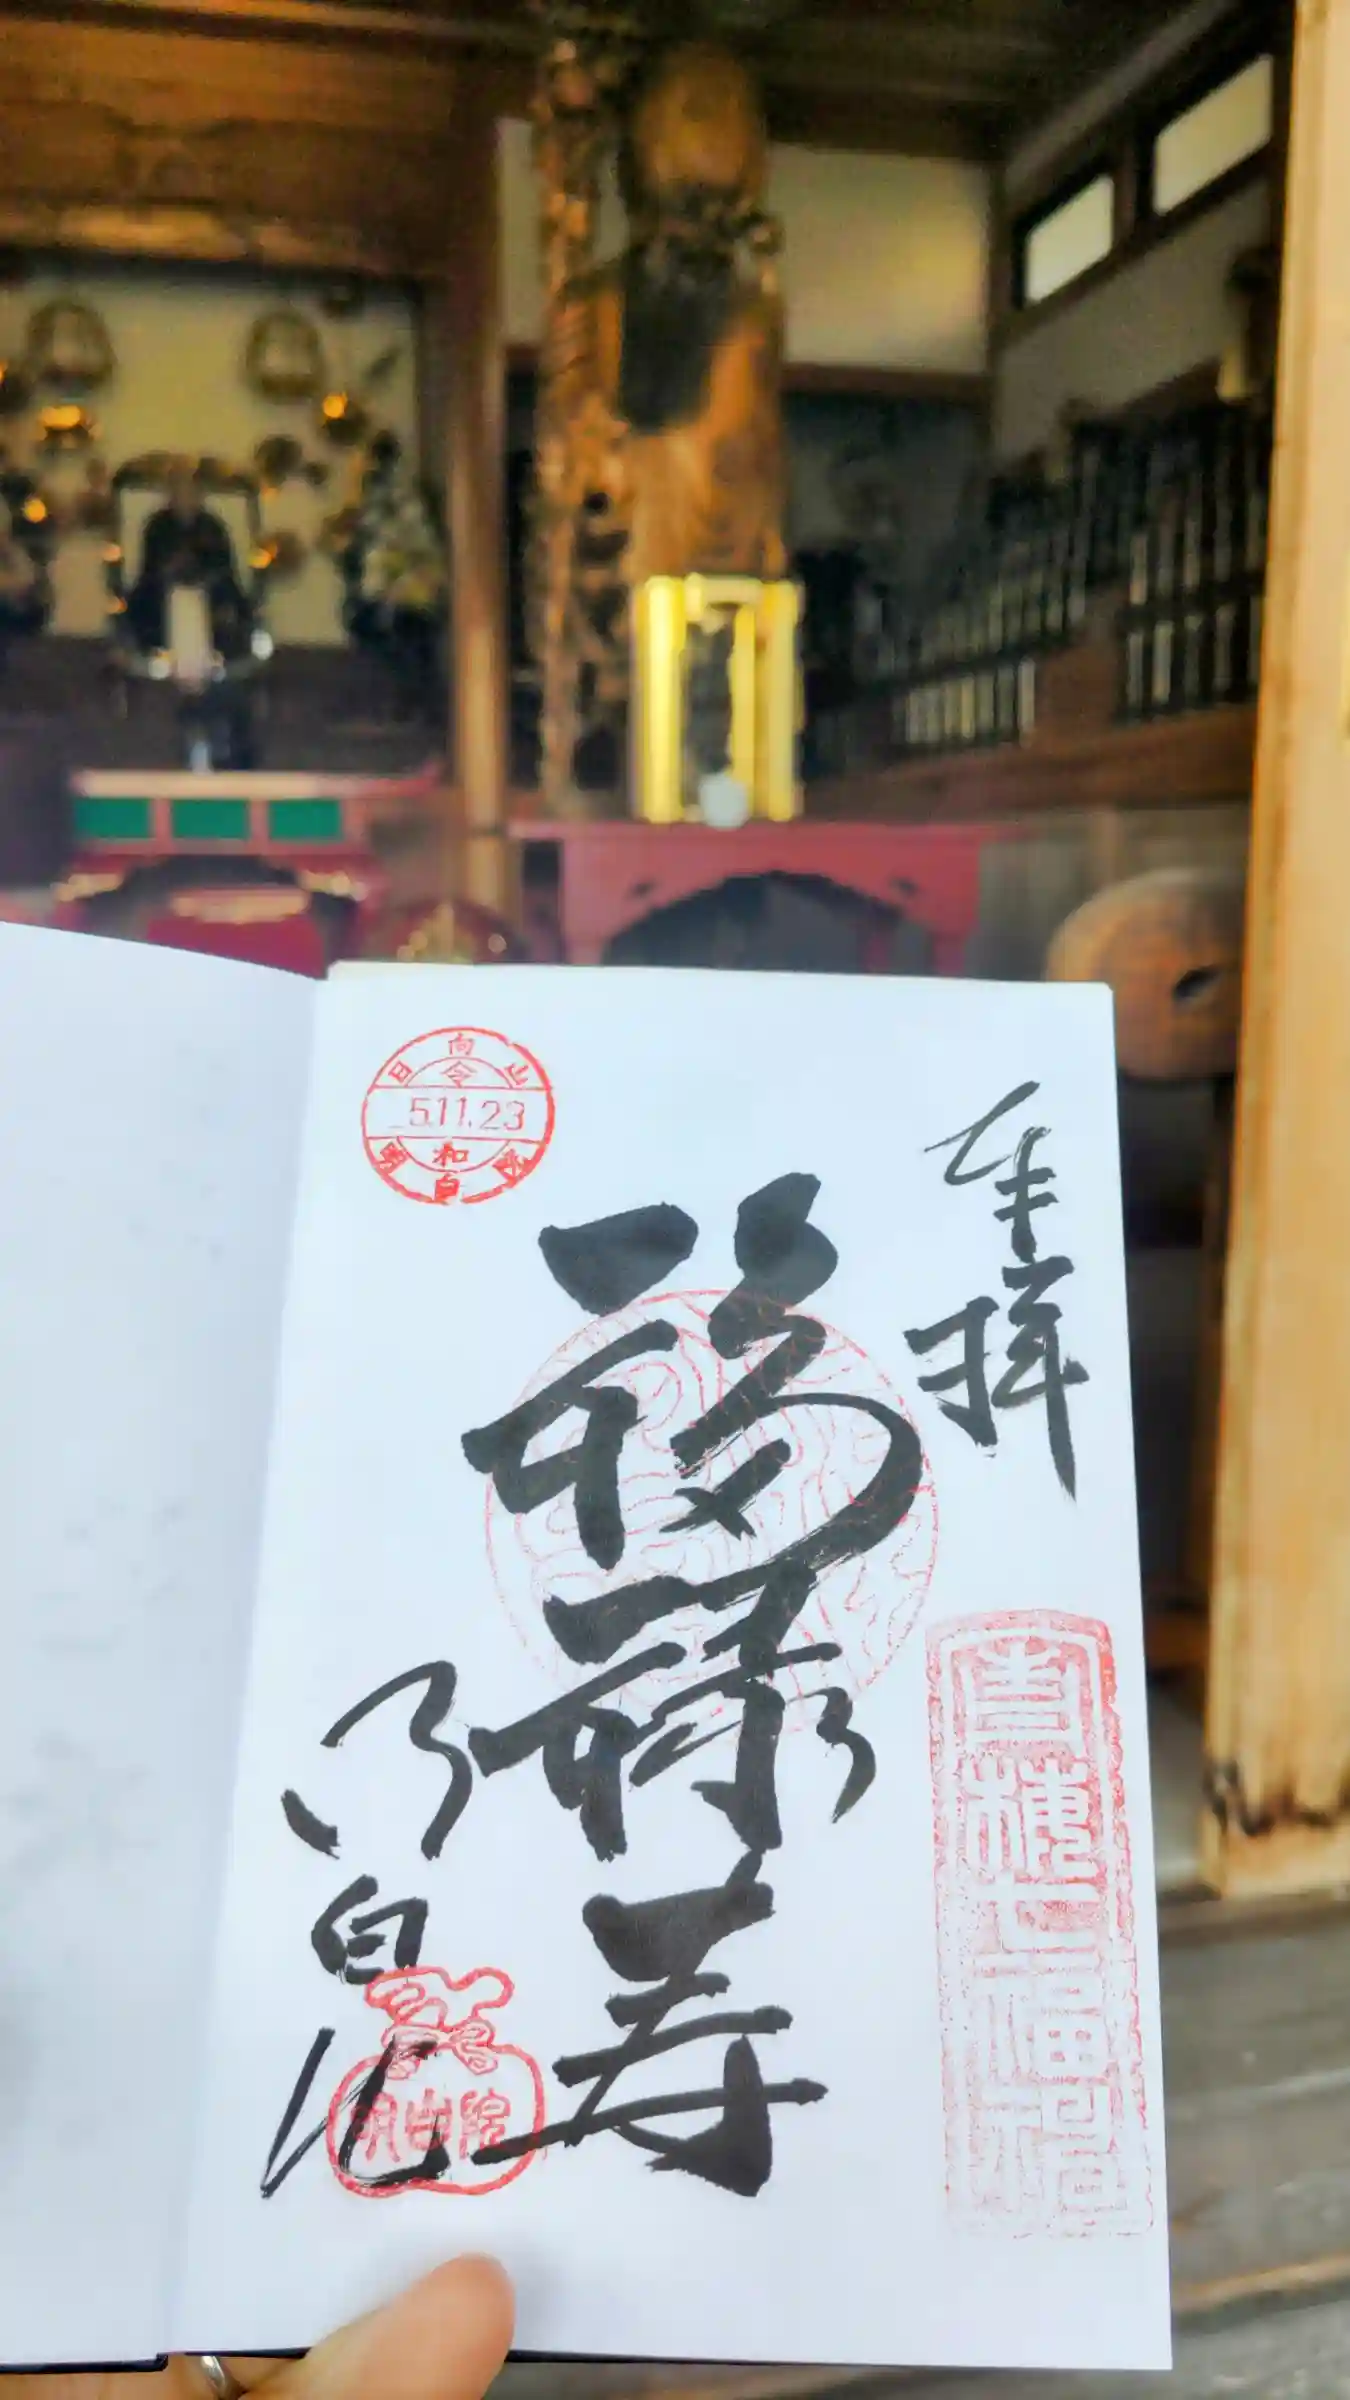 奉拝
青梅七福神
福禄寿
明白院
日向山
令和
5.11.23
明白院
明白院